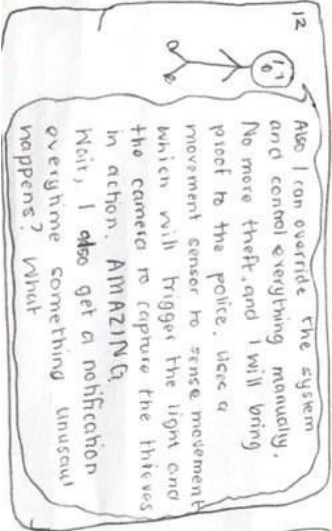 12
Also I can override the system
and control everything manually.
No more theft. and I will bring
proof to the police. Uses a
movement sensor to sense movement
which will trigger the light and
the camera to capture the thieves
in action. AMAZING
Wait, I also get a notification
everytime something unusaul
happens? What